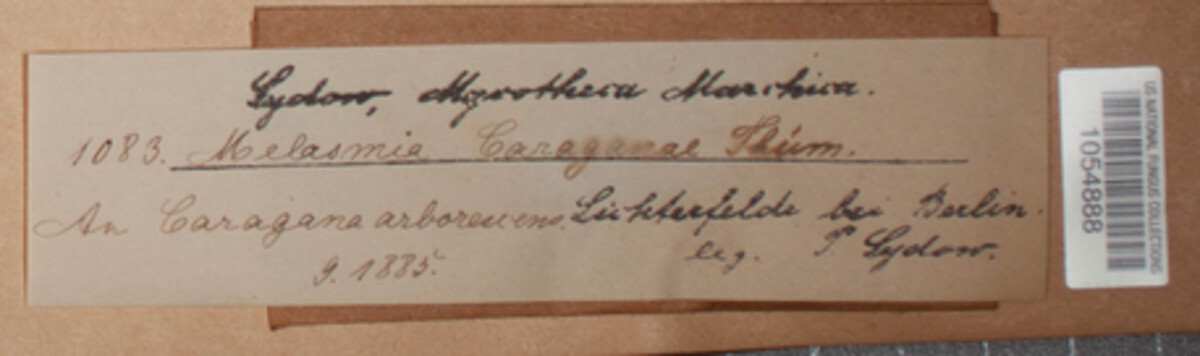 Sydow, Mycotheca Marchica.
1083. Melasmia Caraganae Thüm.
An Caragana arborescens. Lichterfelde bei Berlin.
9. 1885. leg. P. Sydow.
US NATIONAL FUNGUS COLLECTIONS
1054888